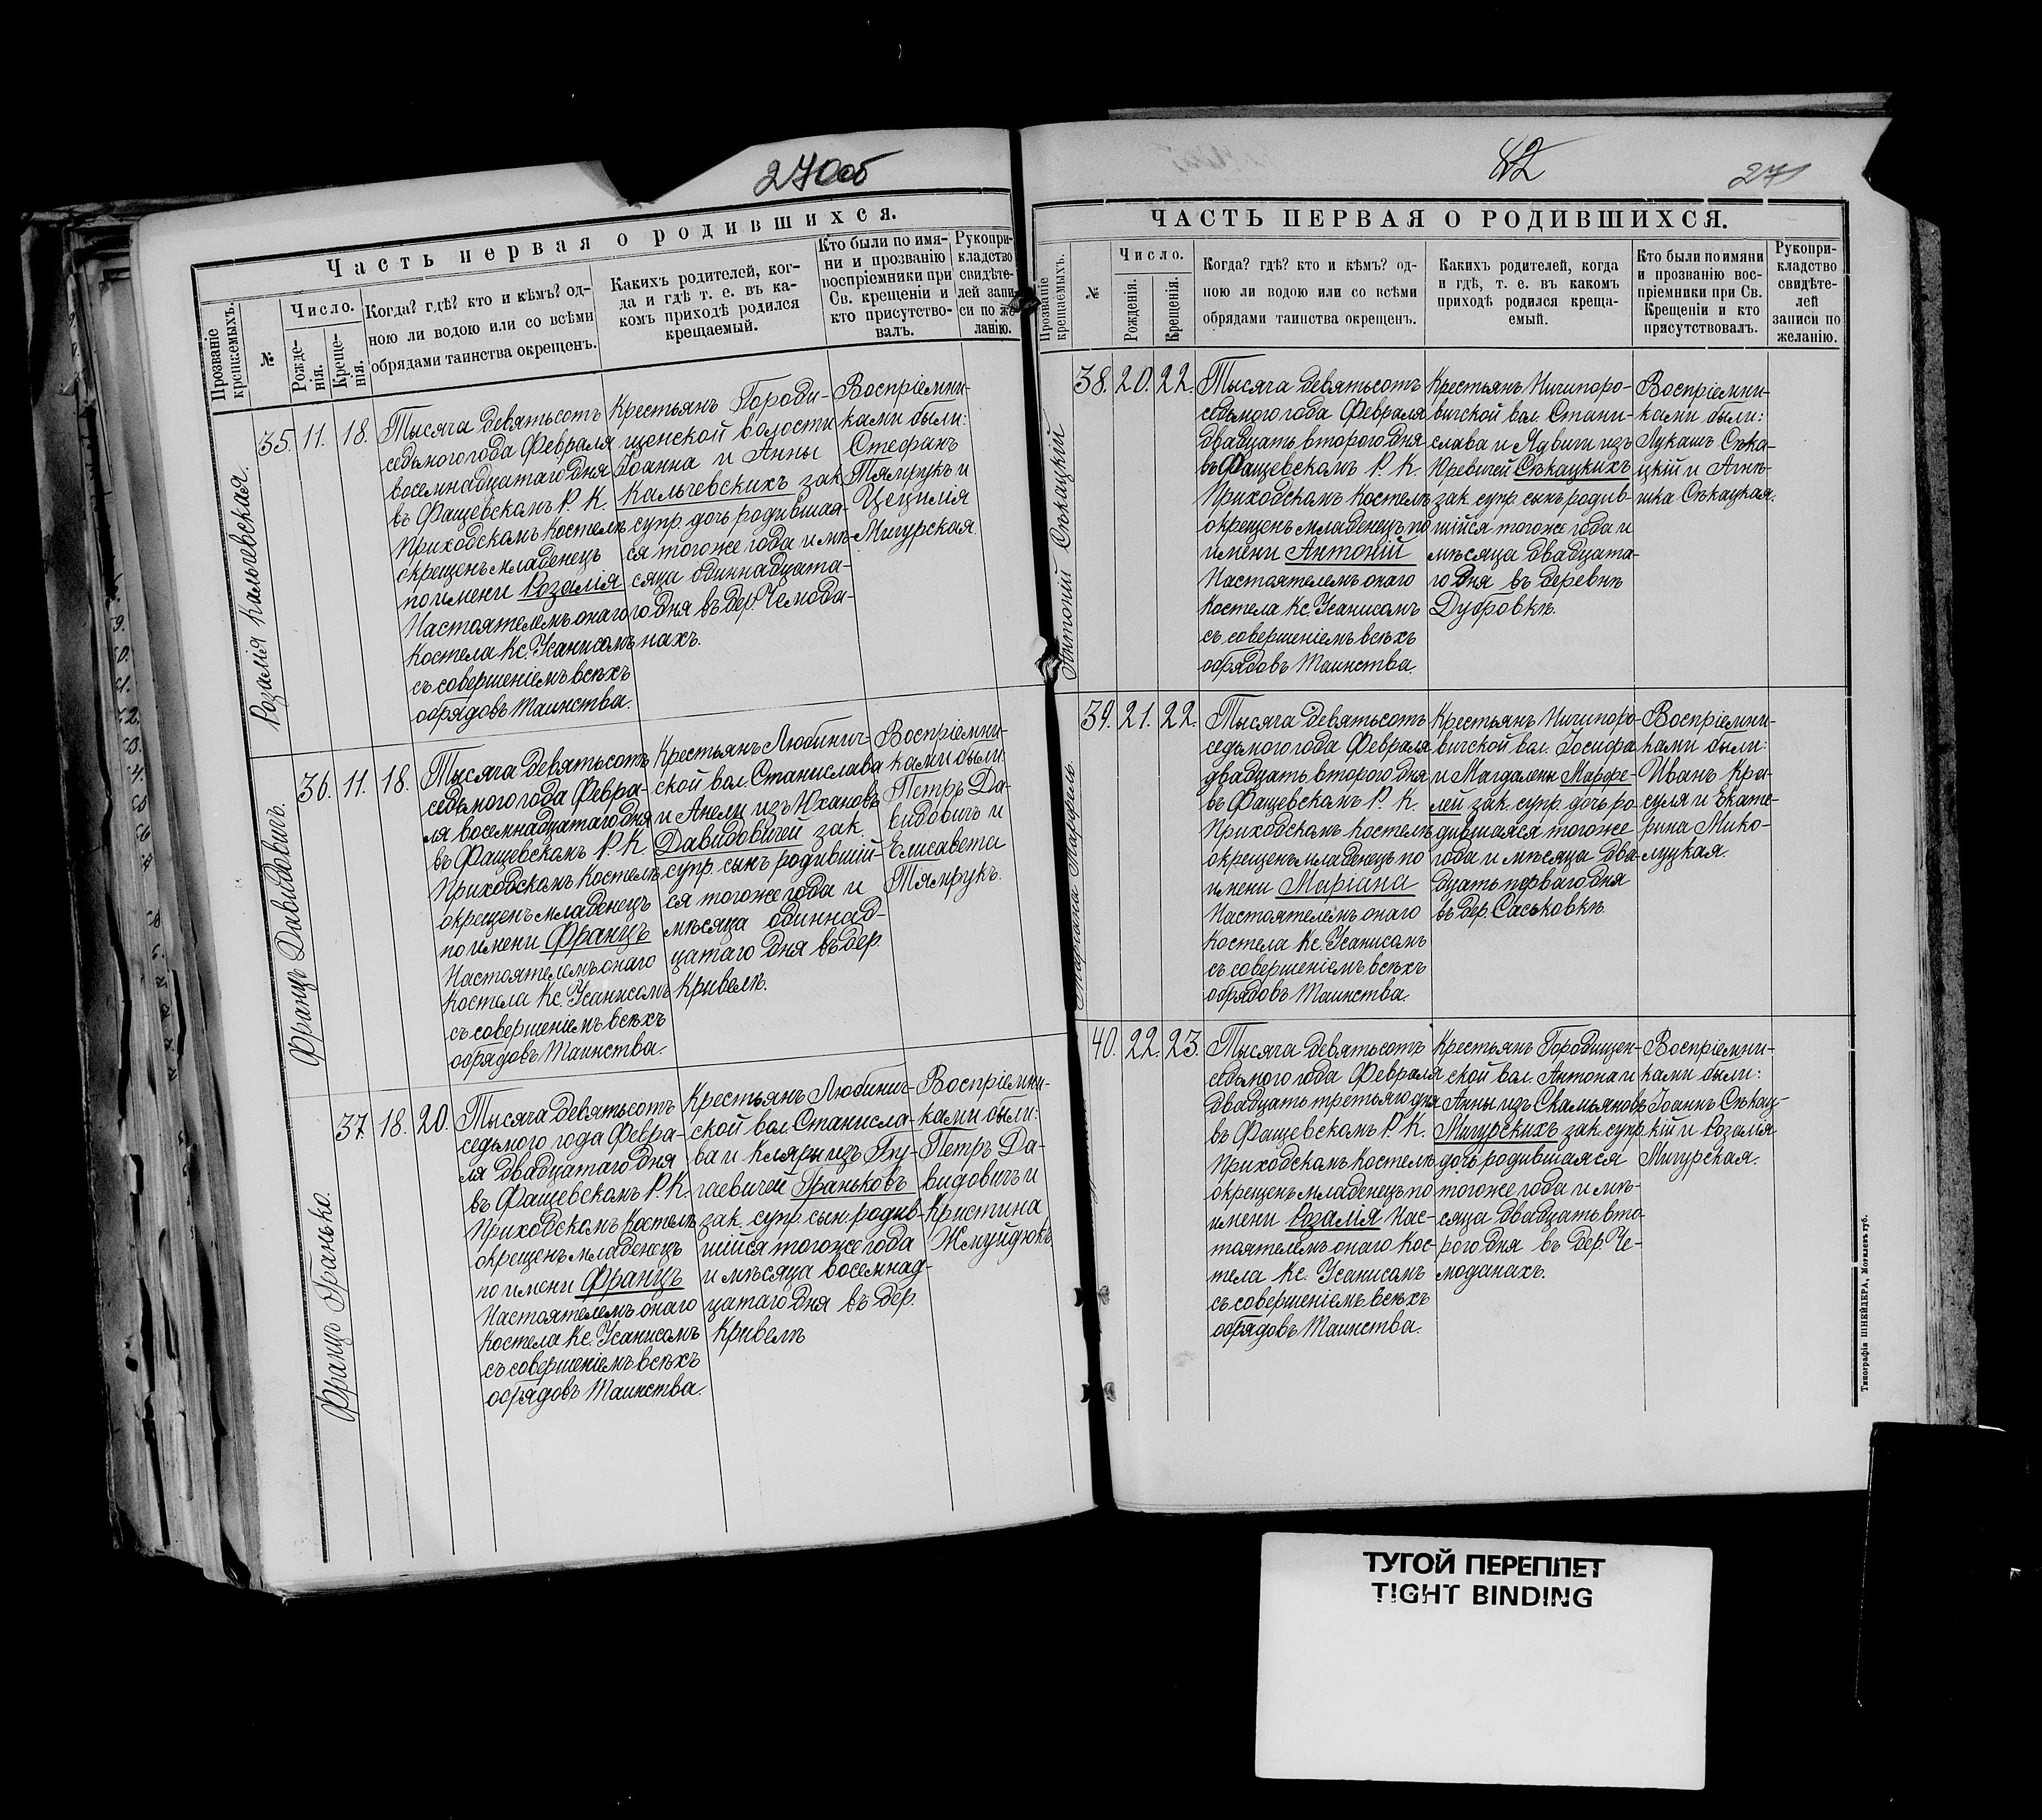 270об
Часть первая о родившихся.
Прозваніе крещаемыхъ.
№
Число.
Рожде-
нія.
Креще-
нія.
Когда? гдѣ? кто и кѣмъ? од-
ною ли водою или со всѣми
обрядами таинства окрещенъ.
Какихъ родителей, ког-
да и гдѣ т. е. въ ка-
комъ приходѣ родился
крещаемый.
Кто были по имя-
ни и прозванію
воспріемники при
Св. крещеніи и
кто присутство-
валъ.
Рукопри-
кладство
свидѣте-
лей запи-
си по же-
ланію.
Розалія Кальчевская.
35.
11.
18.
Тысяча девятьсотъ
седьмого года Февраля
восемнадцатаго дня
въ Фащевскомъ Р. К.
Приходскомъ Костелѣ
окрещенъ младенецъ
по имени Розалія
Настоятелемъ онаго
Костела Кс. Усанисомъ
съ совершеніемъ всѣхъ
обрядовъ Таинства.
Крестьянъ Городи-
щенской волости
Іоанна и Анны
Кальчевскихъ зак.
супр. дочь родившая-
ся тогоже года и мѣ-
сяца одиннадцата-
го дня въ дер. Чемода-
нахъ.
Воспріемни-
ками были:
Стефанъ
Тямрукъ и
Цецилія
Мигурская.
Францъ Давидовичъ.
36.
11.
18.
Тысяча девятьсотъ
седьмого года Февра-
ля восемнадцатаго дня
въ Фащевскомъ Р. К.
Приходскомъ Костелѣ
окрещенъ младенецъ
по имени Францъ
Настоятелемъ онаго
Костела Кс. Усанисомъ
съ совершеніемъ всѣхъ
обрядовъ Таинства.
Крестьянъ Любинич-
ской вол. Станислава
и Анели изъ Юхановъ
Давидовичей зак.
супр. сынъ родившій-
ся тогоже года и
мѣсяца одиннад-
цатаго дня въ дер.
Кривелѣ.
Воспріемни-
ками были:
Петръ Да-
видовичъ и
Елисавета
Тямрукъ.
Францъ Гранько.
37.
18.
20.
Тысяча девятьсотъ
седьмого года Февра-
ля двадцатаго дня
въ Фащевскомъ Р. К.
Приходскомъ Костелѣ
окрещенъ младенецъ
по имени Францъ
Настоятелемъ онаго
Костела Кс. Усанисомъ
съ совершеніемъ всѣхъ
обрядовъ Таинства.
Крестьянъ Любинич-
ской вол. Станисла-
ва и Кляры изъ Бу-
гаевичей Граньковъ
зак. супр. сын. родив-
шійся тогоже года
и мѣсяца восемнад-
цатаго дня въ дер.
Кривелѣ
Воспріемни-
ками были:
Петръ Да-
видовичъ и
Кристина
Жмуйдюкъ.
42
271
ЧАСТЬ ПЕРВАЯ О РОДИВШИХСЯ.
Прозваніе крещаемыхъ.
№
Число.
Рожденія.
Крещенія.
Когда? гдѣ? кто и кѣмъ? од-
ною ли водою или со всѣми
обрядами таинства окрещенъ.
Какихъ родителей, когда
и гдѣ, т. е. въ какомъ
приходѣ родился креща-
емый.
Кто были по имяни
и прозванію вос-
пріемники при Св.
Крещеніи и кто
присутствовалъ.
Рукопри-
кладство
свидѣте-
лей
записи по
желанію.
Антоній Сѣкацкій
38.
20.
22.
Тысяча девятьсотъ
седьмого года Февраля
двадцать второго дня
въ Фащевскомъ Р. К.
Приходскомъ Костелѣ
окрещенъ младенецъ по
имени Антоній
Настоятелемъ онаго
Костела Кс. Усанисомъ
съ совершеніемъ всѣхъ
обрядовъ Таинства.
Крестьянъ Ничипоро-
вичской вол. Стани-
слава и Ядвиги изъ
Юревичей Сѣкацкихъ
зак. супр. сынъ родив-
шійся тогоже года и
мѣсяца двадцата-
го дня въ деревнѣ
Дубровкѣ.
Воспріемни-
ками были:
Лукашъ Сѣка-
цкій и Агнѣ-
шка Сѣкацкая.
Маріана Марфель
39.
21.
22.
Тысяча девятьсотъ
седьмого года Февраля
двадцать второго дня
въ Фащевскомъ Р. К.
Приходскомъ Костелѣ
окрещенъ младенецъ по
имени Маріана
Настоятелемъ онаго
Костела Кс. Усанисомъ
съ совершеніемъ всѣхъ
обрядовъ Таинства.
Крестьянъ Ничипоро-
вичской вол. Іосифа
и Магдалены Марфе-
лей зак. супр. дочь ро-
дившаяся тогоже
года и мѣсяца два-
дцать перваго дня
въ дер. Саськовкѣ.
Воспріемни-
ками были:
Иванъ Кра-
суля и Екате-
рина Мико-
луцкая.
40.
22.
23.
Тысяча девятьсотъ
седьмого года Февраля
двадцать третьяго дня
въ Фащевскомъ Р. К.
Приходскомъ Костелѣ
окрещенъ младенецъ по
имени Розалія Нас-
тоятелемъ онаго Кос-
тела Кс. Усанисомъ
съ совершеніемъ всѣхъ
обрядовъ Таинства.
Крестьянъ Городищен-
ской вол. Антона и
Анны изъ Скамьяновъ
Мигурскихъ зак. супр.
дочь родившаяся
тогоже года и мѣ-
сяца двадцать вто-
рого дня въ дер. Че-
моданахъ.
Воспріемни-
ками были:
Іоаннъ Сѣкац-
кій и Розалія
Мигурская.
Типографія ШНЕЙДЕРА, Могилевъ губ.
ТУГОЙ ПЕРЕПЛЕТ
TIGHT BINDING